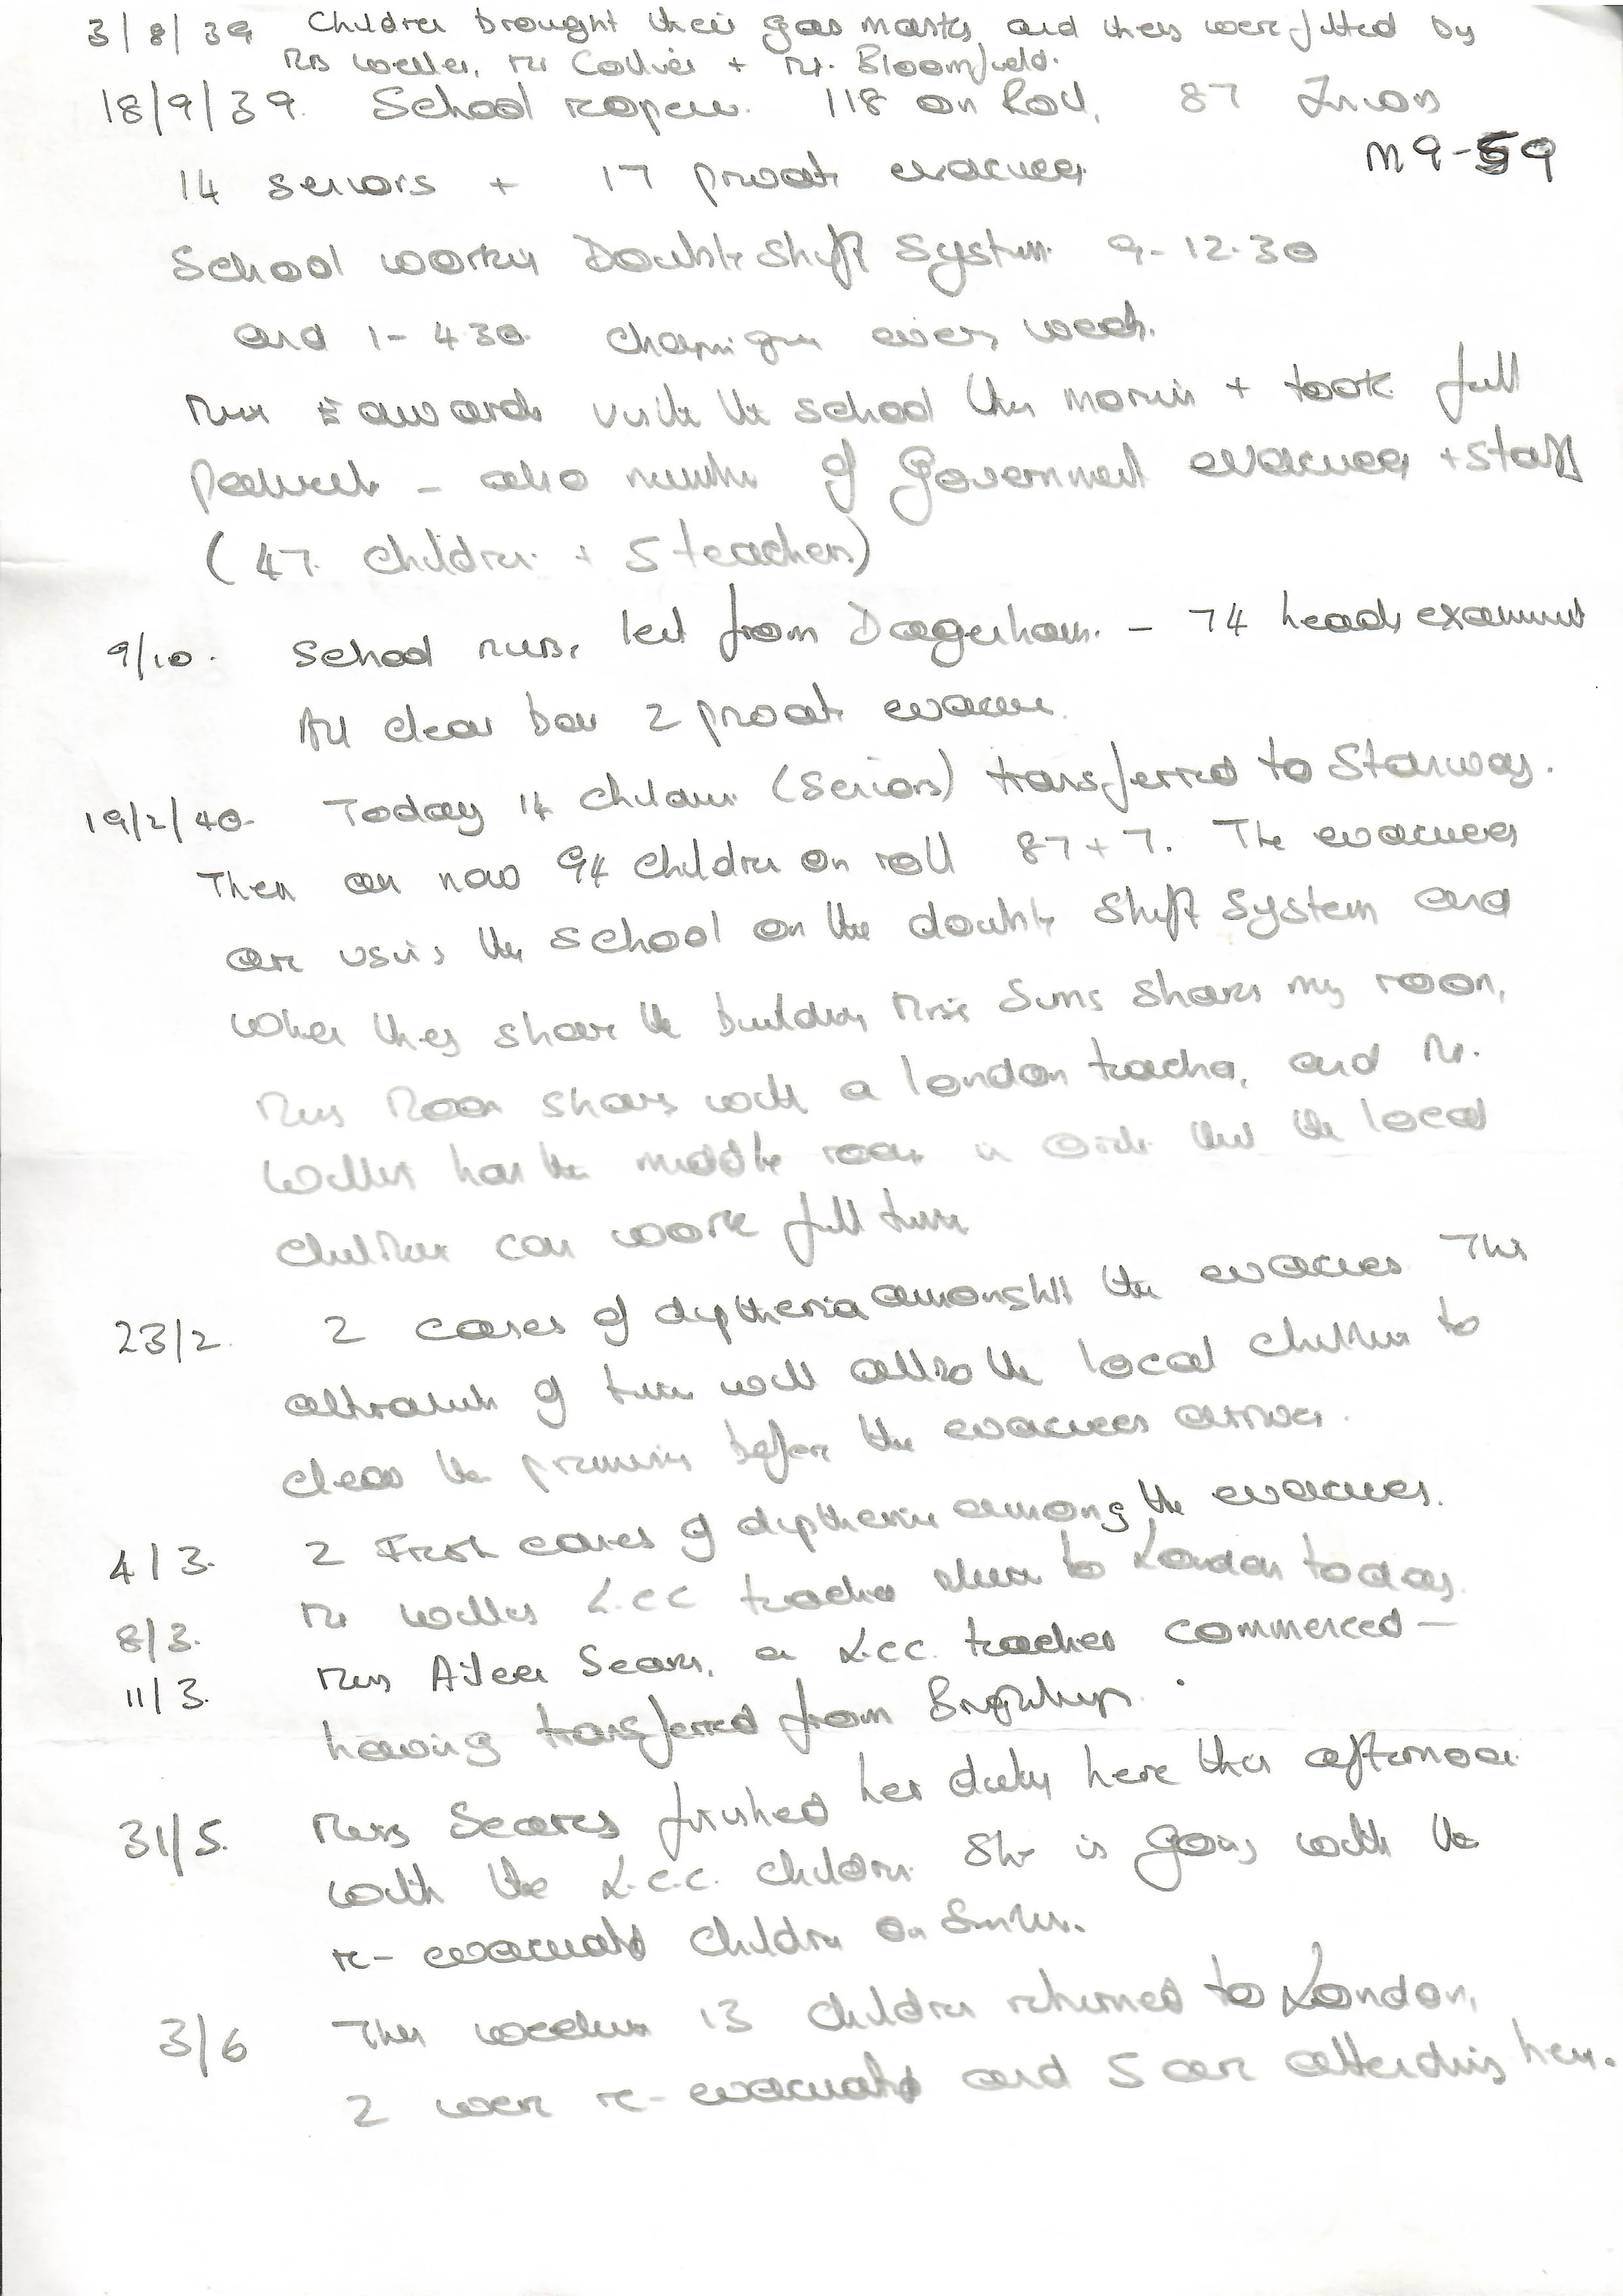 3/8/39 Children brought their gas masks and these were fitted by
Weller, Mr Collier + Mr. Bloomfield.
18/9/39. School reopens. 118 on Roll, 87 Juniors
M9-59
14 seniors + 17 private evacuees
School working Double shift system 9-12.30
and 1-4.30 changing every week.
Miss Edwards visited the school this morning + took full
particulars - also number of Government evacuees + staff
(47 children + 5 teachers)
9/10. School nurse, from Dagenham. - 74 heads examined
All clear bar 2 private evacuees.
19/2/40. Today 14 children (seniors) transferred to Stanway.
There are now 94 children on roll 87+7. The evacuees
are using the school on the double shift system and
when they share the building Miss Sims shares my room,
Miss Moon shares with a London teacher, and Mr.
Weller has the middle room in order that the local
children can work full time
23/2. 2 cases of diptheria amongst the evacuees This
alteration of time will allow the local children to
clear the premises before the evacuees arrive.
4/3. 2 Fresh cases of diptheria among the evacuees.
8/3. Mr Weller L.C.C teacher return to London today.
11/3. Miss Aileen Sears, a L.C.C. teacher commenced —
having transferred from Brightlingsea.
31/5. Miss Seares finished her duty here this afternoon
with the L.C.C. children. She is going with the
re-evacuated children on Sunday.
3/6 This weekend 13 children returned to London,
2 were re-evacuated and 5 are attending here.